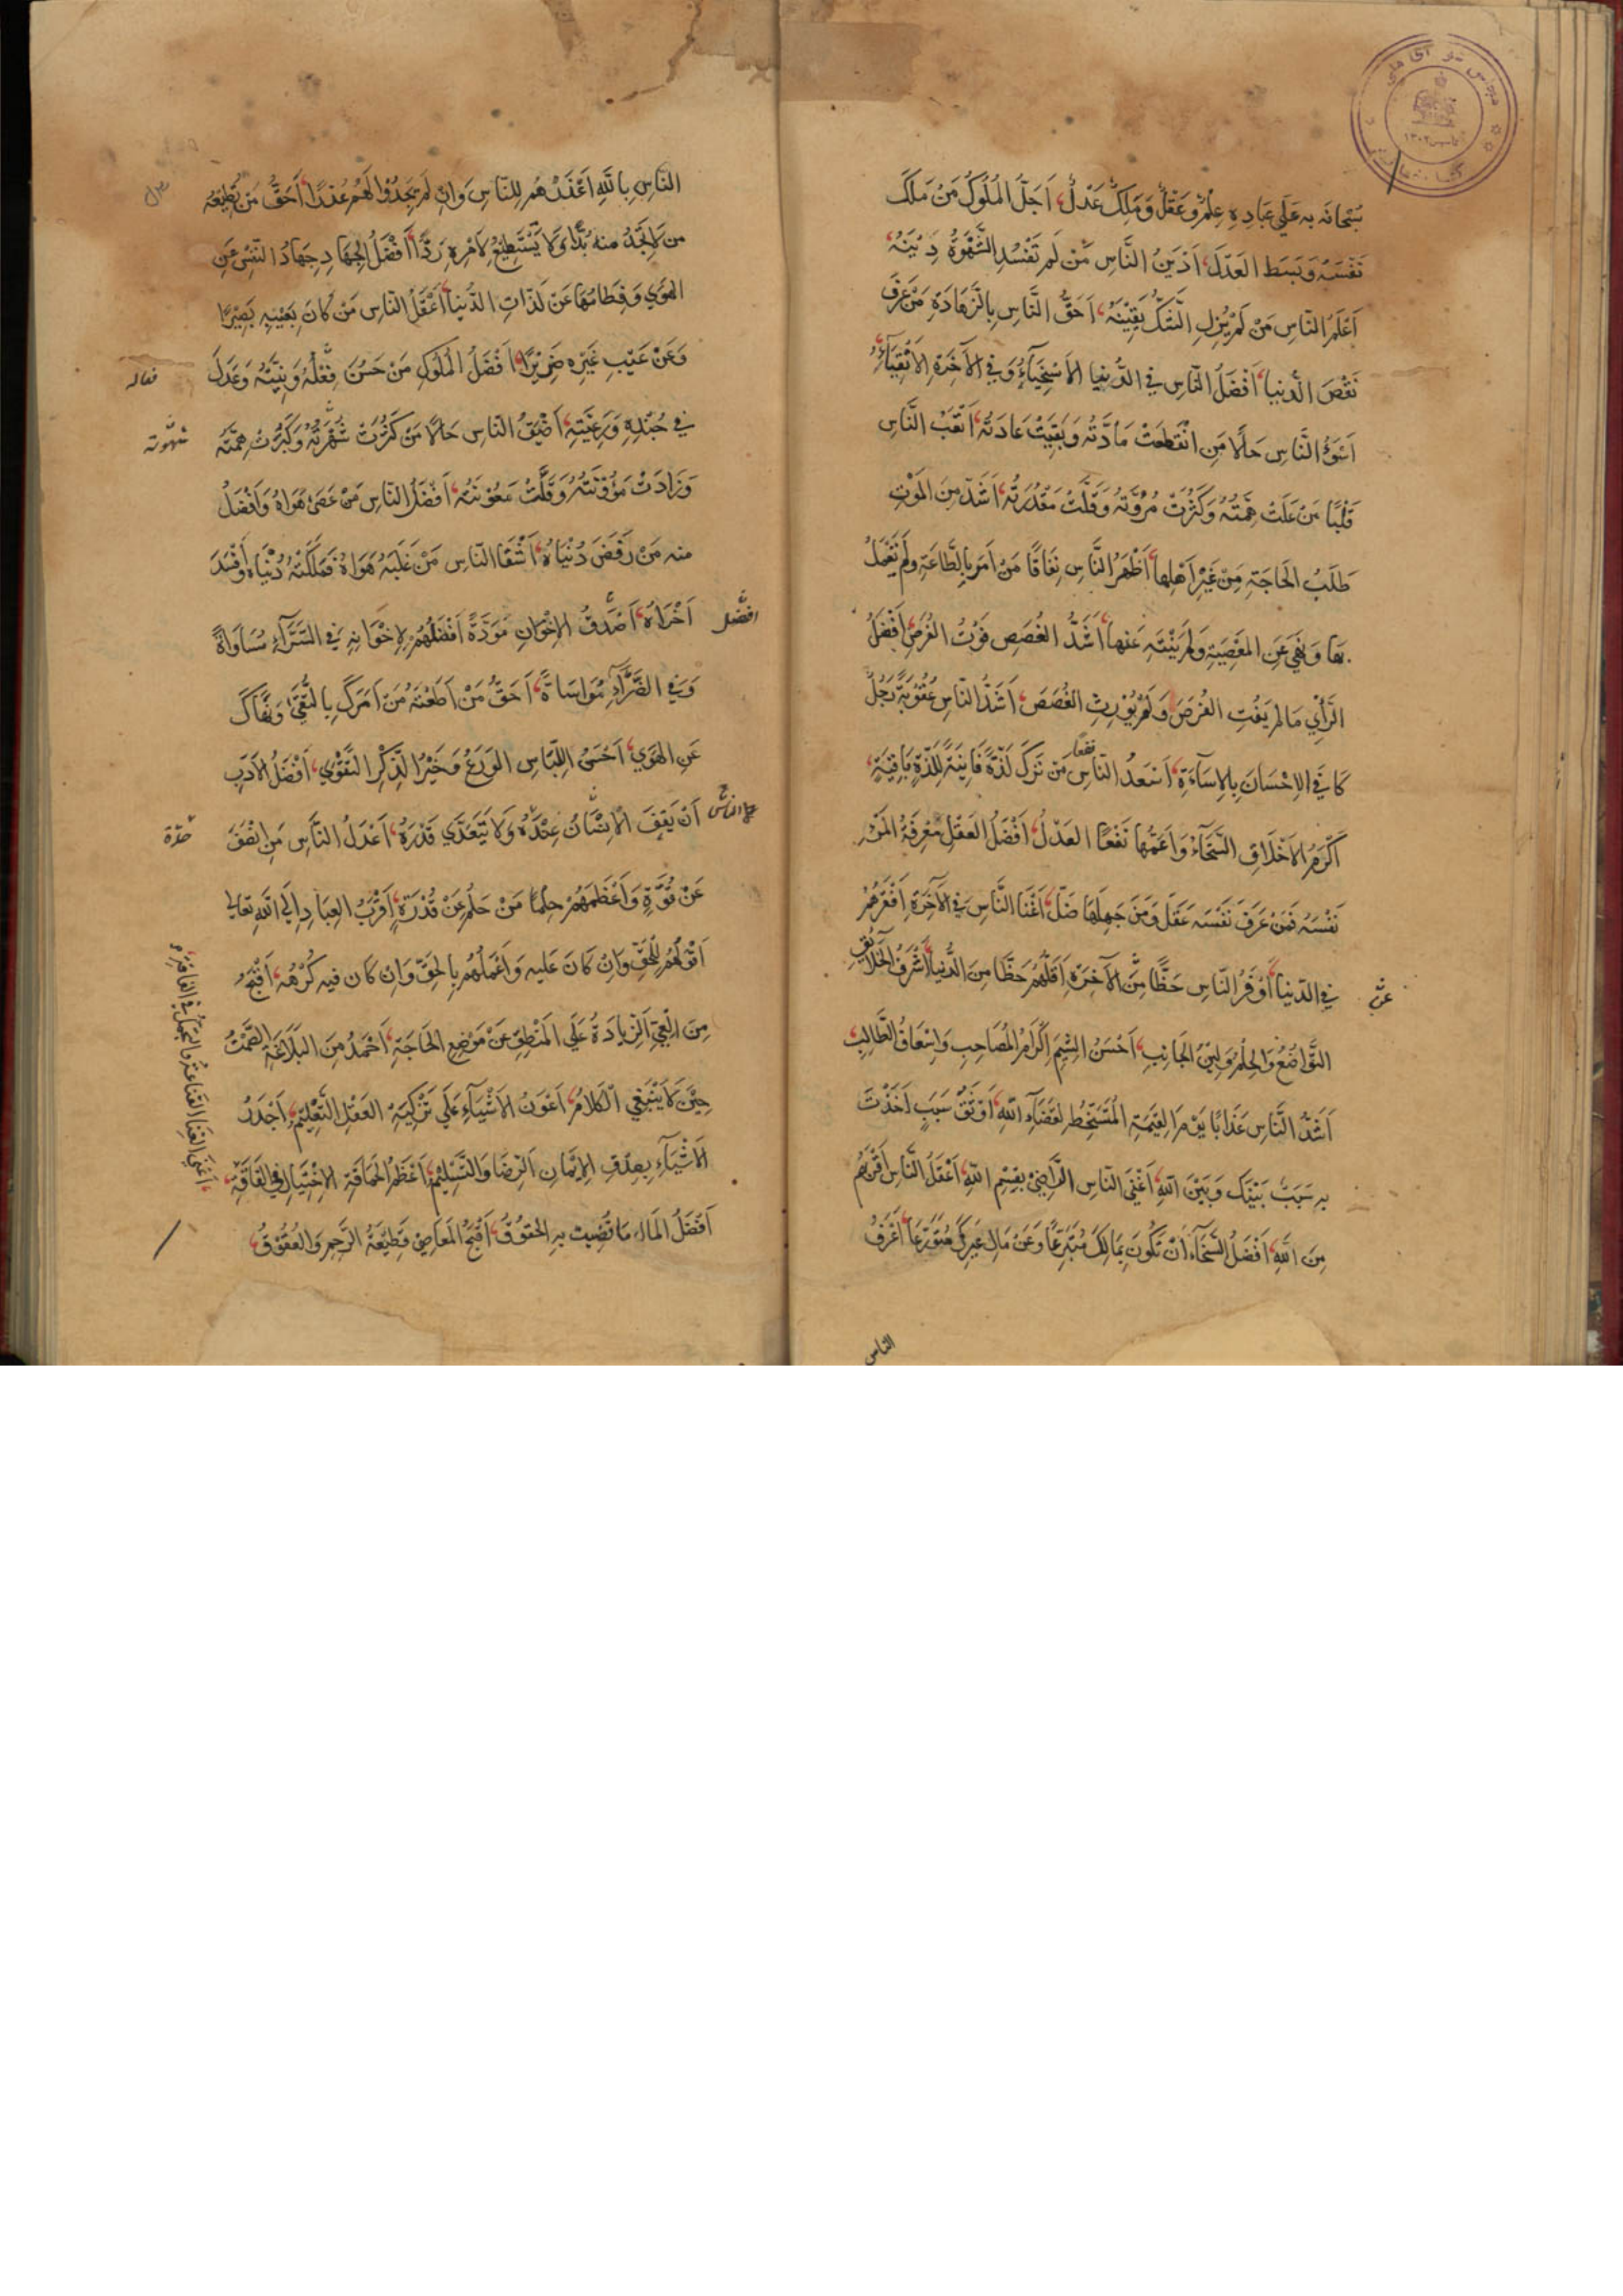 سُبْحَانَه بِهِ عَلَي عِبَادِهِ عِلْمٌ وَعَقْلٌ وَمَلِكٌ عَدْلٌ، اَجَلُّ المُلُوكِ مَنْ مَلَكَ
نَفْسَهُ وَبَسَطَ العَدْلَ، اَدْيَنُ النَّاسِ مَنْ لَمْ تُفْسِدِ الشَّهْوَةُ دِيْنَهُ،
اَعْلَمُ النَّاسِ مَنْ لَمْ يُزِلِ الشَّكُّ يَقِيْنَهُ، اَحَقُّ النَّاسِ بِالزَّهَادَةِ مَنْ عَرَفَ
نَقْصَ الدُّنيا، اَفْضَلُ النَّاسِ فِي الدُّنيا الاَسْخِيَآءُ وَفِي الآخِرَةِ الاَتْقِيَآءُ،
اَسْوَءُ النَّاسِ حَالًا مَنِ انْقَطَعَتْ مَادَّتُه وَبَقِيَتْ عَادَتُهُ، اَتْعَبُ النَّاسِ
قَلْبًا مَنْ عَلَتْ هِمَّتُهُ وَكَثُرَتْ مُرُوَّتُهُ وَقَلَّتْ مَقْدُرَتُهُ، اَشَدُّ مِنَ المَوْتِ
طَلَبُ الحَاجَةِ مِنْ غَيْرِ اَهْلِها، اَظْهَرُ النَّاسِ نِفَاقًا مَنْ اَمَرَ بِالطَّاعَةِ وَلَمْ يَعْمَلْ
بها وَنَهَي عَنِ المَعْصِيَةِ وَلَمْ يَنْتَهِ عَنها، اَشَدُّ الغُصَصِ فَوْتُ الفُرَصِ، اَفْضَلُ
الرَّأْيِ مَا لم يُفِتِ الفُرَصَ وَلَمْ يُوْرِثِ الغُصَصَ، اَشَدُّ النَّاسِ عُقُوبَةً رَجُلٌ
كَافَي الاِحْسَانَ بِالاِسَآءَةِ، اَسْعَدُ النَّاسِ مَنْ تَرَكَ لَذَّةً فَانِيَةً لِلَذَّةٍ بَاقِيَةٍ،
نفعًا
اَكْرَمُ الاَخْلَاقِ السَّخَآءُ وَاَعَمُّهَا نَفْعًا العَدْلُ، اَفْضَلُ العَقْلِ مَعْرِفَةُ المَرْءِ
نَفْسَهُ فَمَنْ عَرَفَ نَفْسَه عَقَلَ وَمَنْ جَهِلَهَا ضَلَّ، اَغْنَا النَّاسِ فِي الآخِرَةِ اَفْقَرُهُمْ
فِي الدّنيا، اَوْفَرُ النّاسِ حَظًّا مِنَ الآخِرَةِ اَقَلُّهُمْ حَظًّا مِنَ الدُّنيا، اَشْرَفُ الخَلَائِقِ
التَّوَاضُعُ وَالحِلْمُ وَلِيْنُ الجَانِبِ، اَحْسَنُ الشِّيَمِ اِكْرَامُ المُصَاحِبِ وَاِسْعَافُ الطَّالِبِ
اَشَدُّ النَّاسِ عَذَابًا يَوْمَ القِيٰمَةِ المُتَسَخِّطُ لِقَضَآءِ اللهِ، اَوْثَقُ سَبَبٍ اَخَذْتَ
بِهِ سَبَبٌ بَيْنَكَ وَبَيْنَ اللهِ، اَغْنَي النّاسِ الرَّاضِيْ بِقِسْمِ اللهِ، اَعْقَلُ النَّاسِ اَقْرَبُهُمْ
مِنَ اللهِ، اَفْضَلُ السَّخَآءِ اَنْ تَكُوْنَ بِمَالِكَ مُتَبَرِّعًا وَعَنْ مَالِ غَيْرِكَ مُتَوَرِّعًا، اَعْرَفُ
الناس
النَّاسِ بِاللّٰهِ اَعْذَرُهُمْ لِلنَّاسِ وَاِنْ لَمْ يَجِدُوْا لَهُمْ عُذْرًا، اَحَقُّ مَنْ تُطِيْعُه
من لَا تَجِدُ منه بُدًّا وَلَا يَسْتَطِيْعُ لِاَمْرِهِ رَدًّا، اَفْضَلُ الجِهَادِ جِهَادُ النَّفْسِ عَنِ
الهَوَي وَفِطَامُهَا عَنْ لَذَّاتِ الدُّنيا، اَعْقَلُ النّاسِ مَنْ كَانَ بِعَيْبِهِ بَصِيْرًا
وَعَنْ عَيْبِ غَيْرِهِ ضَرِيْرًا، اَفْضَلُ المُلُوكِ مَنْ حَسُنَ فِعْلُهُ وَنِيَّتُهُ وَعَدَلَ
فعاله
فِي جُنْدِهِ وَرَعِيَّتِهِ، اَضْيَقُ النّاسِ حَالًا مَنْ كَثُرَتْ شُهْرَتُهُ وَكَبُرَتْ هِمَّتُهُ
شهوته
وَزَادَتْ مَؤُوْنَتُهُ وَقَلَّتْ مَعُوْنَتُهُ، اَفْضَلُ النّاسِ مَنْ عَصَي هَوَاهُ وَاَفْضَلُ
منه مَنْ رَفَضَ دُنْيَاهُ، اَشْقَا النّاسِ مَنْ غَلَبَهُ هَوَاهُ فَمَلَكَتْهُ دُنْيَاه وَاَفْسَدَ
اُخْرَاهُ، اَصْدَقُ الاِخْوَانِ مَوَدَّةً اَفْضَلُهُمْ لِاِخْوَانِهِ فِي السَّرَّآءِ مُسَاوَاةً
افضل
وَفِي الضَّرَّآءِ مُوَاسَاةً، اَحَقُّ مَنْ اَطَعْتَهُ مَنْ اَمَرَكَ بِالتُّقَي وَنَهَاكَ
عَنِ الهَوَي، اَحْسَنُ اللِّبَاسِ الوَرَعُ وَخَيْرُ الذِّكْرِ التَّقْوَي، اَفْضَلُ الاَدَبِ
اَنْ يَقِفَ الاِنْسَانُ عِنْدَهُ وَلَا يَتَعَدَّي قَدْرَهُ، اَعْدَلُ النَّاسِ مَنْ اَنْصَفَ
حدّه
عَنْ قُوَّةٍ وَاَعْظَمَهُمْ حِلْمًا مَنْ حَلُمَ عَنْ قُدْرَةٍ، اَقْرَبُ العِبَادِ اِلَي اللهِ تعالي
اَقْوَلُهُمْ لِلْحَقِّ وَاِنْ كَانَ عَلَيهِ وَاَعْمَلُهُمْ بِالحَقِّ وَاِن كَان فيه كُرْهُهُ، اَقْبَحُ
مِنَ العِيِّ الزِّيَادَةُ عَلَي المَنْطِقِ عَنْ مَوْضِعِ الحَاجَةِ، اَحْمَدُ مِنَ البَلَاغَةِ الصَّمْتُ
حِيْنَ لَا يَنْبَغِي الْكَلَامُ، اَعْوَنُ الاَشْيَآءِ عَلَي تَزْكِيَةِ العَقْلِ التَّعْلِيْمُ، اَجْدَرُ
الاَشْيَآءِ بِصِدْقِ الاِيْمَانِ الرِّضَا وَالتَّسْلِيْمُ، اَعْظَمُ الحَمَاقَةِ الاِخْتِيَالُ فِي الفَاقَةِ،
اَغْنَي الغِنَا القَنَاعَةُ والتجمل في الفاقة،
اَفْضَلُ المَالِ مَا قُضِيَت بِهِ الحُقُوْقُ، اَقْبَحُ المَعَاصِيْ قَطِيْعَةُ الرَّحِمِ وَالعُقُوْقُ،